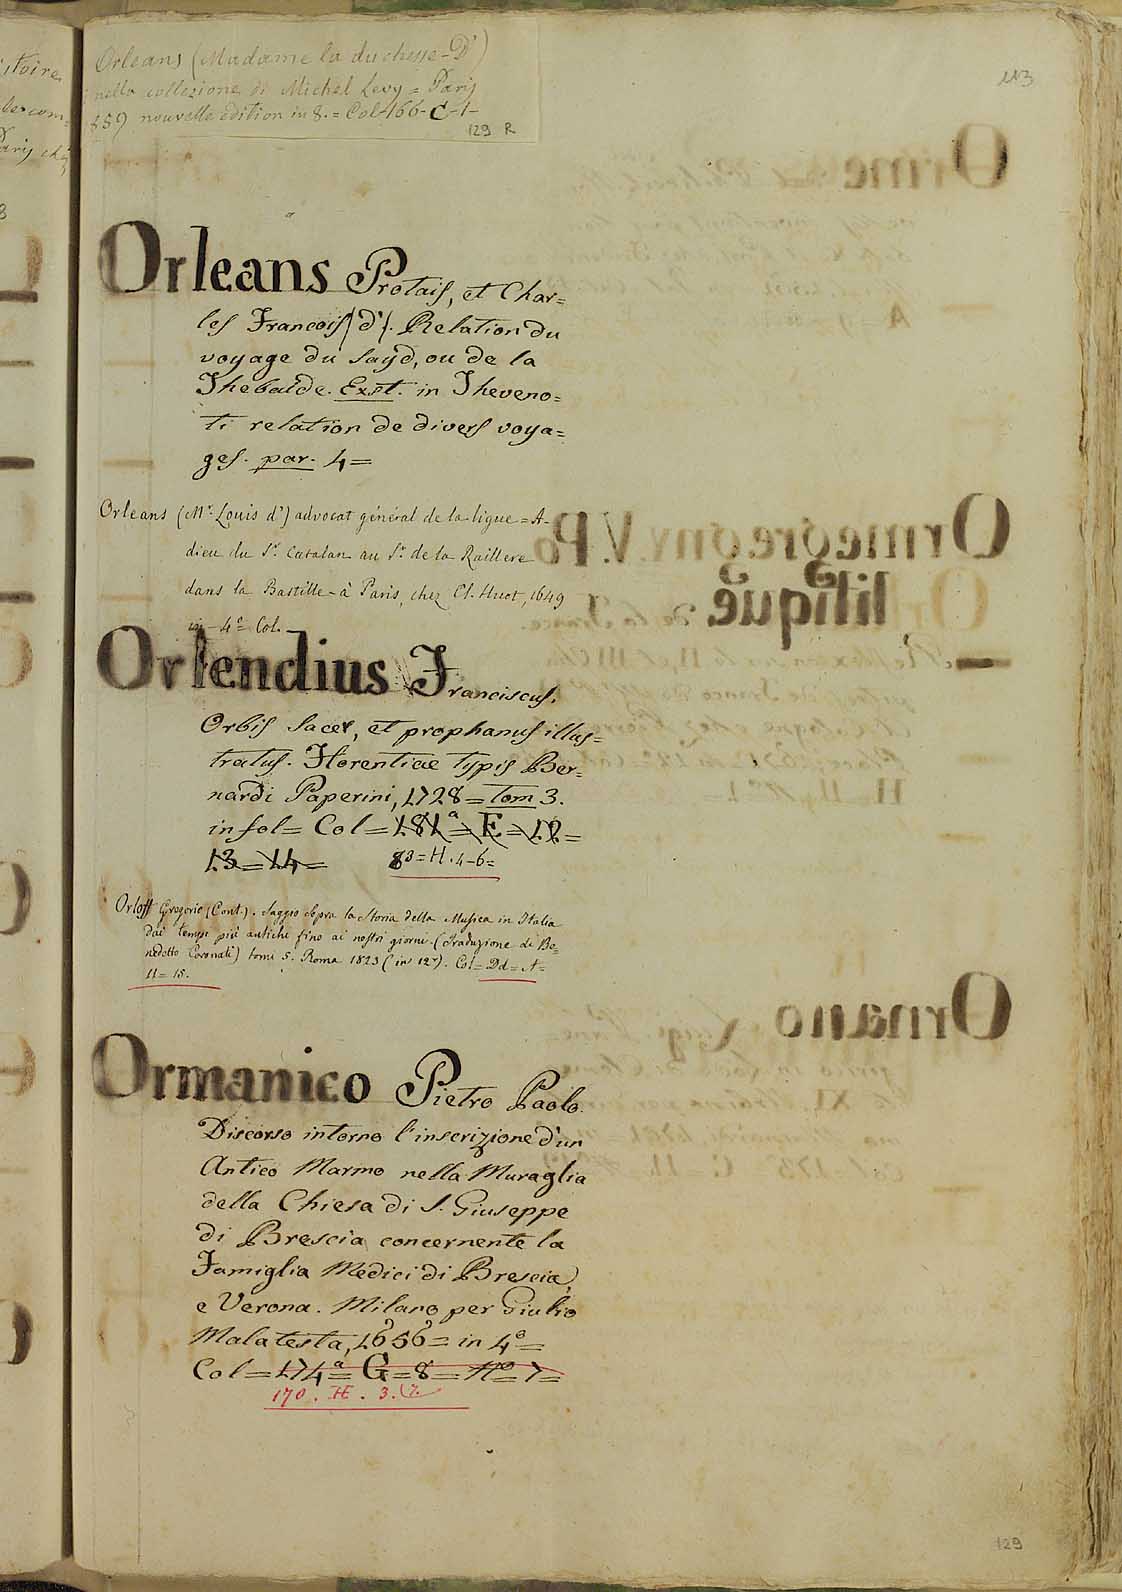 Orleans (Madame la duchesse-D')
nella collezione di Michel Levy = Paris
859 nouvelle edition in 8. = Col-166-C-1-
129 R
113
Orleans Protais, et Char=
les Francois (d'). Relation du
voyage du Sayd, ou de la
Thebaide. Exst. in Theveno=
ti relation de divers voya=
ges. par. 4=
Orleans (Mr. Louis d') advocat général de la ligue = A-
dieu du Sr. Catalan au Sr. de la Raillere
dans la Bastille - à Paris, chez Cl. Huot, 1649
in-4° Col.
Orlendius Franciscus.
Orbis Sacer, et prophanus illus=
tratus. Florentiae typis Ber=
nardi Paperini, 1728 = tom 3.
in fol = Col = 181a = E = 12 =
13 = 14 = 83 = H. 4-6 =
Orloff Gregorio (Cont.). Saggio sopra la Storia della Musica in Italia
dai tempi più antichi fino ai nostri giorni. (Traduzione di Be=
nedetto Coronati) tomi 5. Roma 1823 (in 12°). Col = Dd = A =
11 = 15.
Ormanico Pietro Paolo.
Discorso intorno l'inscrizione d'un
Antico Marmo nella Muraglia
della Chiesa di S. Giuseppe
di Brescia concernente la
Famiglia Medici di Brescia,
e Verona. Milano per Giulio
Malatesta, 1656 = in 4° =
Col = 174a = G = 8 = No = 7 =
170. H. 3. (7.
129